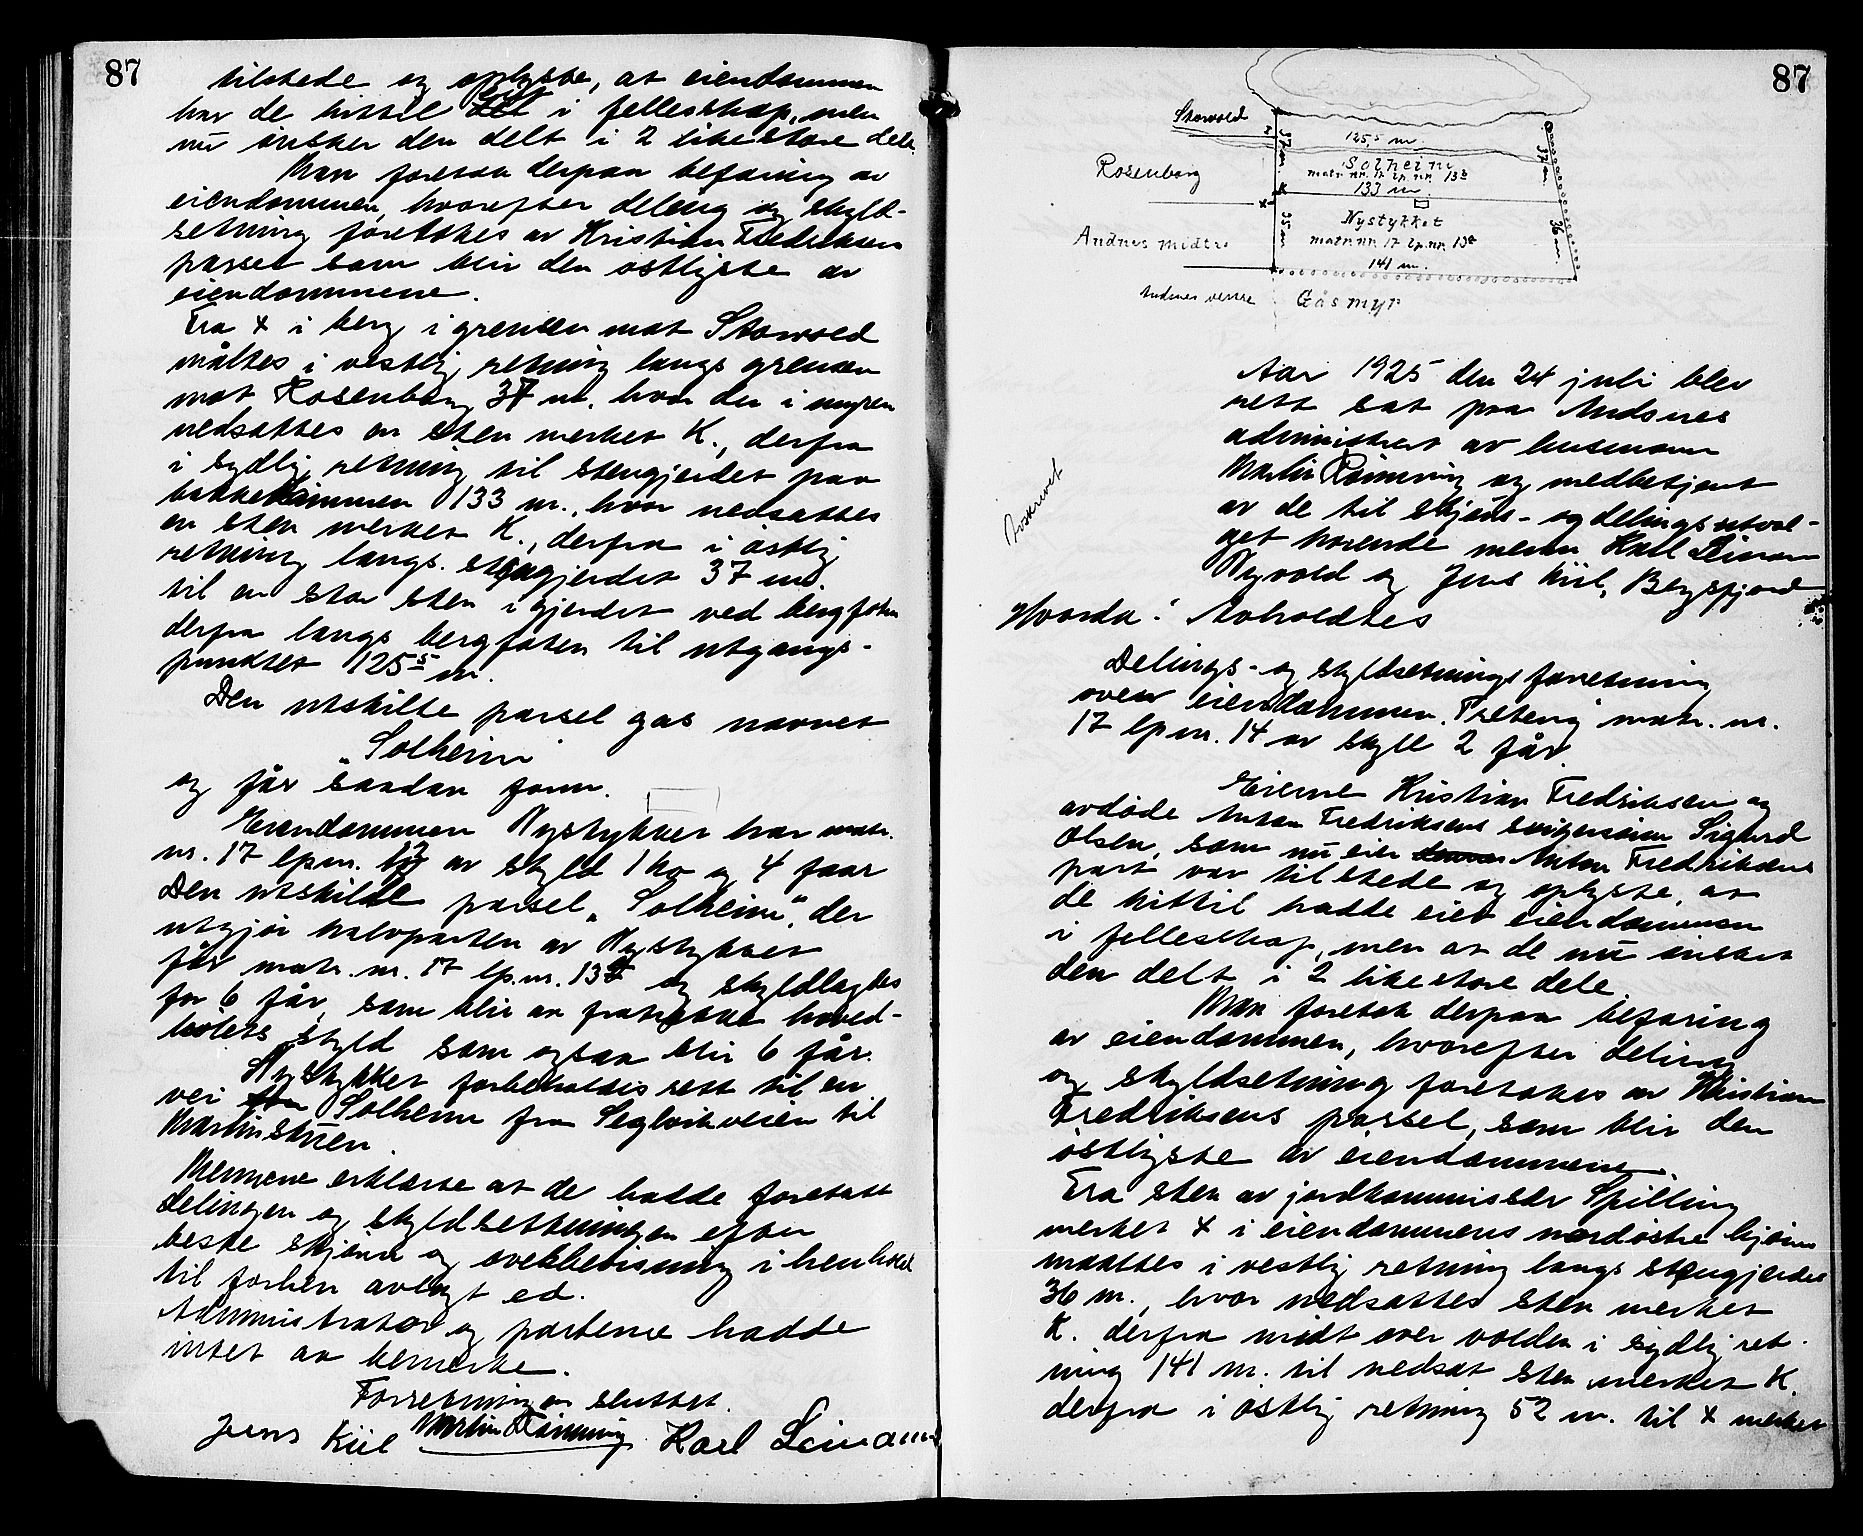 87
tilstede og oplyste, at eiendommen
har de hittil eiet i fellesskap, men
nu ønsker den delt i 2 like store dele.
Man foretok derpaa befaring av
eiendommen, hvorefter deling og skyld-
setning foretokes av Kristian Fredriksens
parsel som blir den østligste av
eiendommene.
Fra + i berg i grensen mot Storvold
måltes i vestlig retning langs grensen
mot Rosenberg 37 m. hvor der i myren
nedsattes en sten merket K., derfra
i sydlig retning til stengjerdet paa
bakkekammen 133 m., hvor nedsattes
en sten merket K., derfra i østlig
retning langs stengjerdet 37 m.
til en stor sten i gjerdet ved bergfoten
derfra langs bergfoten til utgangs-
punktet 125⁵ m.
Den utskilte parsel gas navnet
"Solheim"
og får saadan form.
Eiendommen Nystykket har matr.
nr. 17 lpnr. 13 av skyld 1 ko og 4 faar
Den utskilte parsel "Solheim", der
utgjør halvparten av Nystykket
får matr. nr. 17 lp.nr. 13b og skyldlagtes
for 6 får, som blir at fratrekke hoved-
bølets skyld som ogsaa blir 6 får.
Nystykket forbeholdes rett til en
vei Solheim fra Seglvikveien til
Martinstuen.
Mennene erklærte at de hadde foretatt
delingen og skyldsettningen efter
beste skjønn og overbevisning i henhold
til forhen avlagt ed.
Administrator og parterne hadde
intet at bemerke.
Forretningen sluttet.
Jens Kiil Martin Rønning Karl Leinan
87
Storvold
Rosenberg
Andnes midtre
Andnes vestre
x
37 m
125,5 m
Solheim
matr. nr. 17 lp. nr. 13b
133 m
37 m
K
x
35 m
Nystykket
matr. nr. 17 lp. nr. 13a
141 m.
36 m
Gåsmyr
Aar 1925 den 24 juli blev
rett sat paa Andsnes
administrert av lensmann
Martin Rønning og medbetjent
av de til skjøns- og delingsutval-
get hørende menn Karl Leinan
Nyvold og Jens Kiil, Bergsfjord
Hvorda: Avholdtes
Avskrevet
Delings- og skyldsetningsforretning
over eiendommen "Treberg" matr. nr.
17 lpnr. 14 av skyld 2 får.
Eierne Kristian Fredriksen og
avdøde Anton Fredriksens svigersønn Sigurd
Olsen, som nu eier Anton Fredriksens
part var tilstede og oplyste, at
de hittil hadde eiet eiendommen
i fellesskap, men at de nu ønsket
den delt i 2 like store dele.
Man foretok derpaa befaring
av eiendommen, hvorefter deling
og skyldsetning foretokes av Kristian
Fredriksens parsel, som blir den
østligste av eiendommene.
Fra sten av jordkommissær Spilling
merket + i eiendommens nordøstre hjørne
maaltes i vestlig retning langs stengjerdet
36 m., hvor nedsattes sten merket
K. derfra midt over volden i sydlig ret-
ning 141 m. til nedsat sten merket K.
derfra i østlig retning 52 m. til + merket